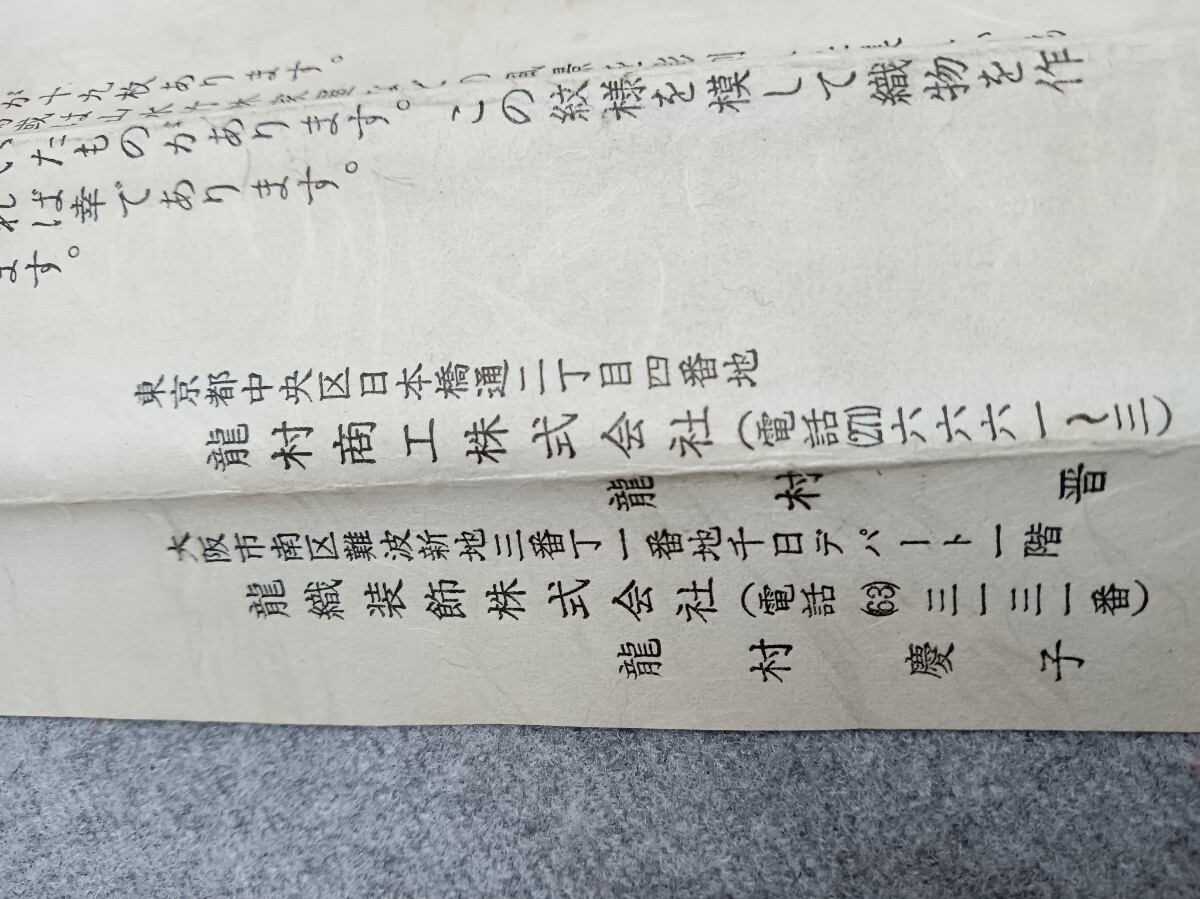 が十九枚あります。
いたものがあります。 この紋様を模して織物を作
れば幸であります。
ます。
東京都中央区日本橋通二丁目四番地
龍村商工株式会社(電話(271)六六六一〜三)
龍村 晋
大阪市南区難波新地三番丁一番地千日デパート一階
龍織装飾株式会社(電話(63)三一三一番)
龍村慶子